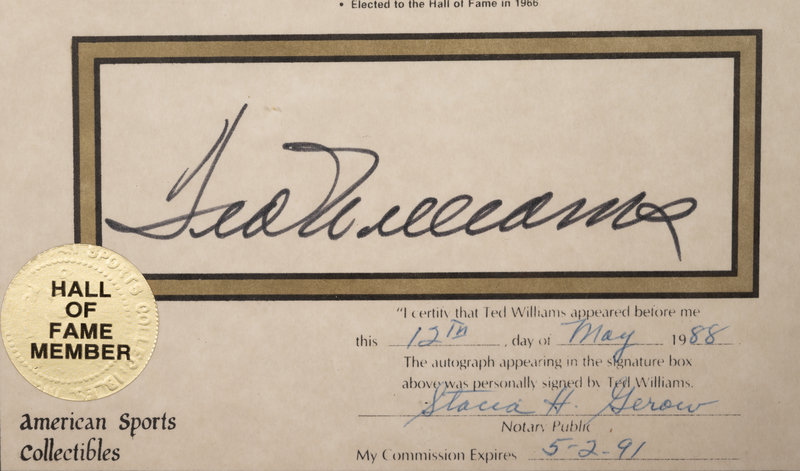 • Elected to the Hall of Fame in 1966
Ted Williams
HALL
OF
FAME
MEMBER
"I certify that Ted Williams appeared before me
this 12TH, day of May 1988
The autograph appearing in the signature box
above was personally signed by Ted Williams.
Stacia H. Gerow
Notary Public
My Commission Expires 5-2-91
American Sports
Collectibles